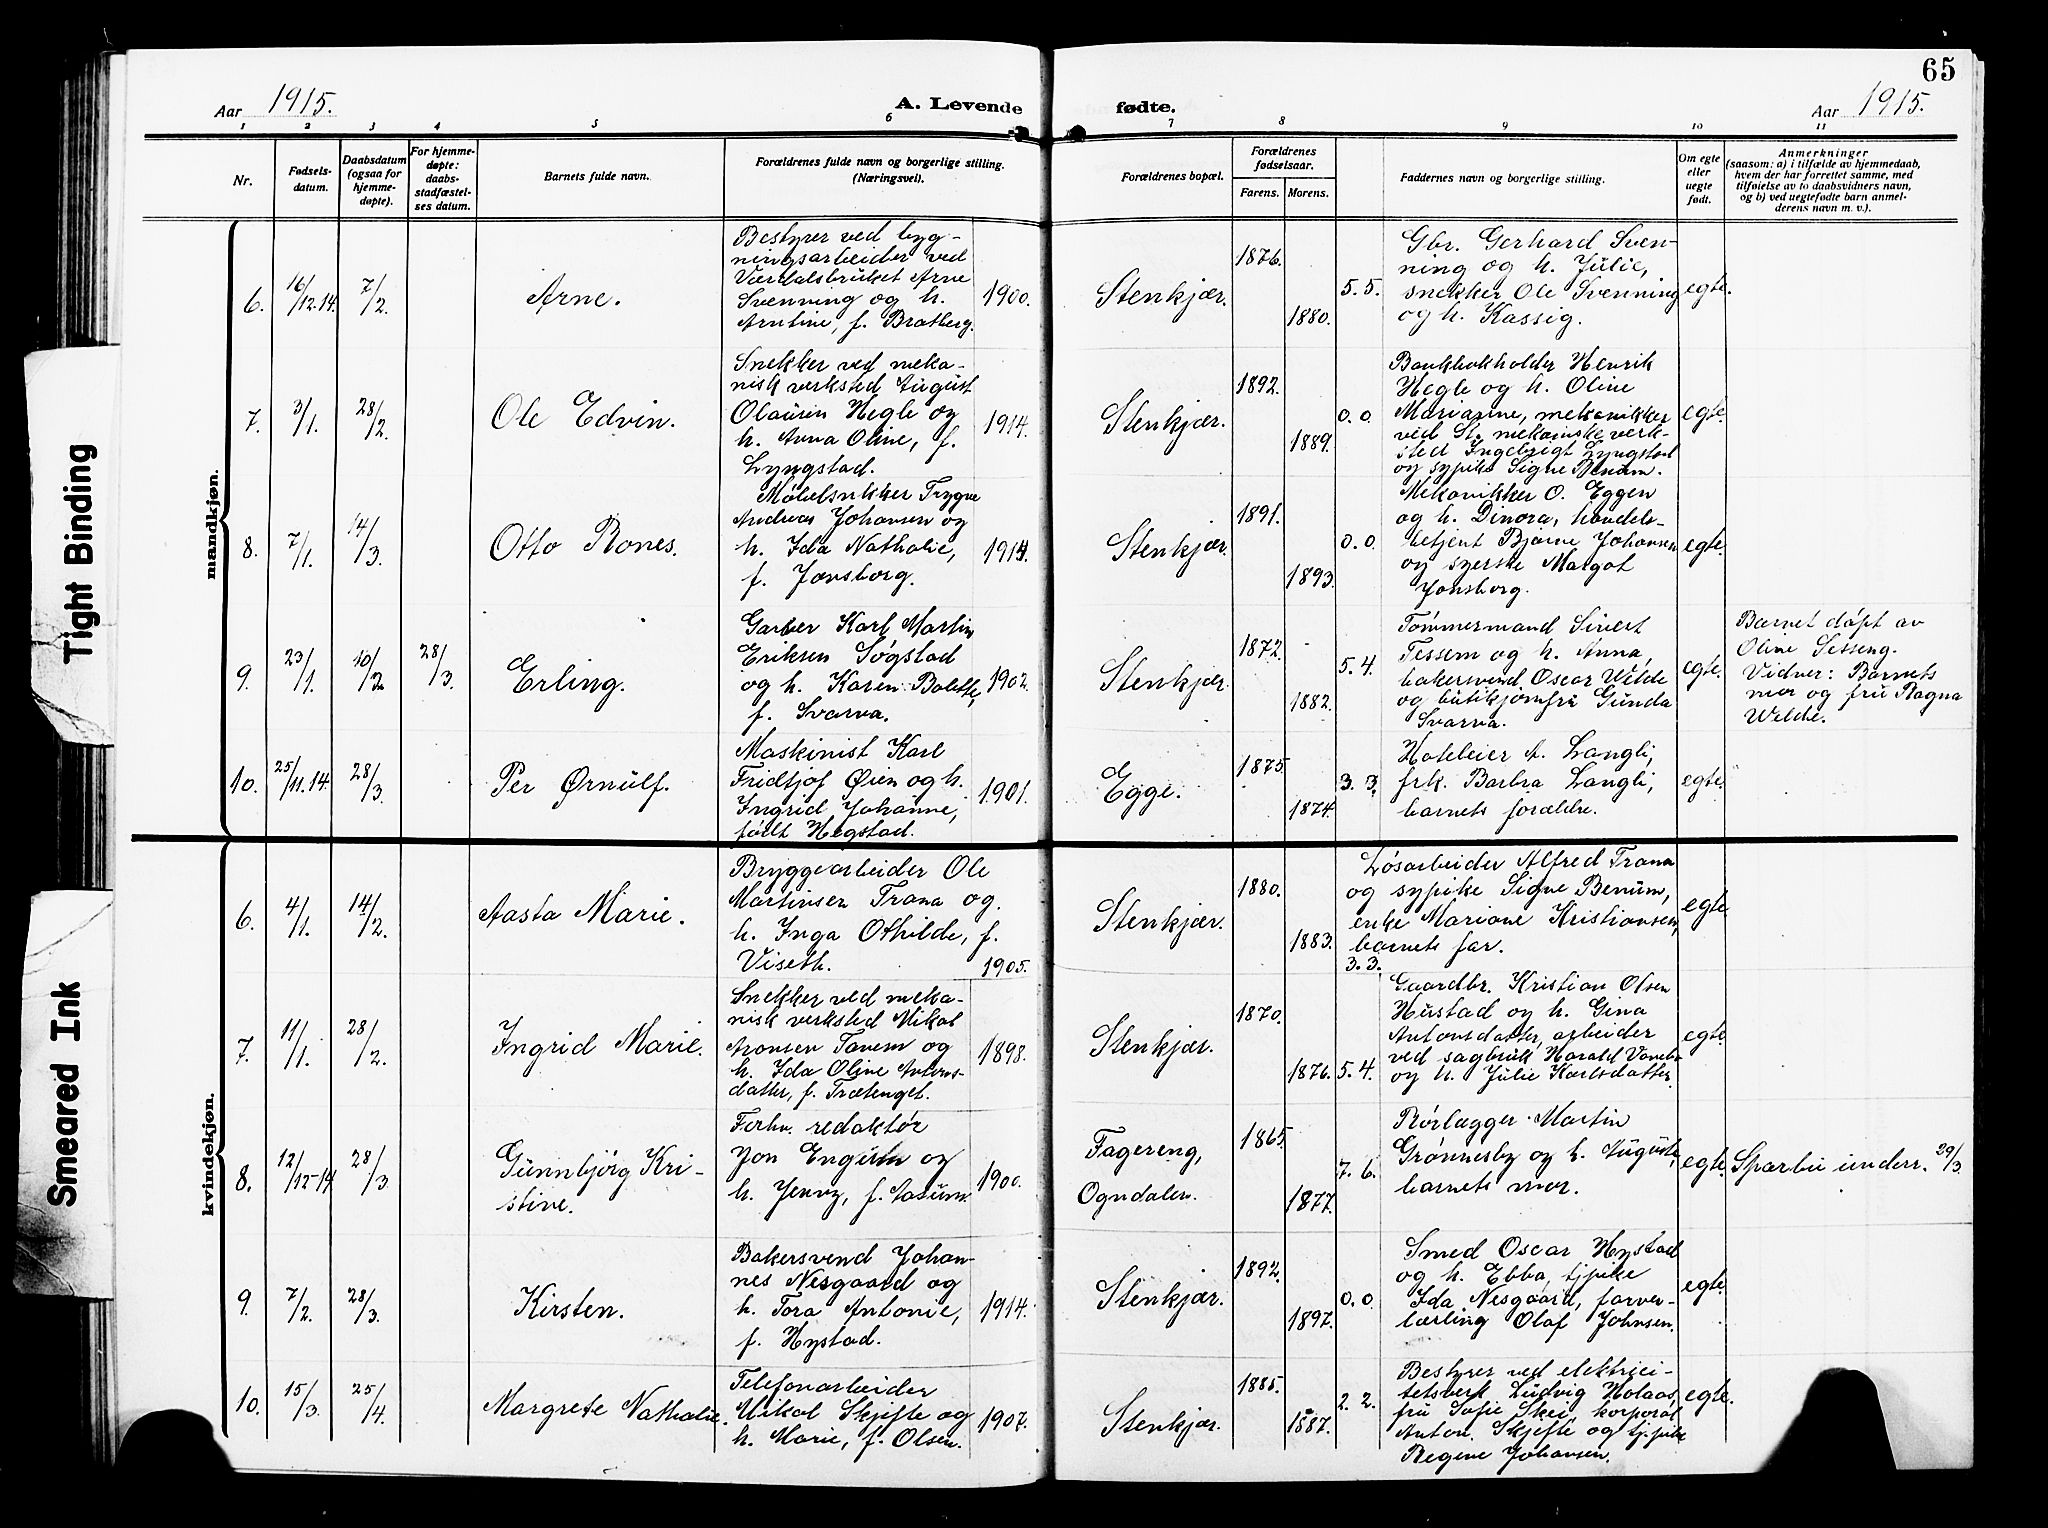 65
Aar 1915.
A. Levende fødte.
Aar 1915.
1 2 3 4 5 6 7 8 9 10 11
Nr.
Fødsels-
datum.
Daabsdatum
(ogsaa for
hjemme-
døpte).
For hjemme-
døpte:
daabs-
stadfæstel-
ses datum.
Barnets fulde navn.
Forældrenes fulde navn og borgerlige stilling.
(Næringsvei).
Forældrenes bopæl.
Forældrenes
fødselsaar.
Farens. Morens.
Faddernes navn og borgerlige stilling.
Om egte
eller
uegte
født.
Anmerkninger
(saasom: a) i tilfælde av hjemmedaab,
hvem der har forrettet samme, med
tilføielse av to daabsvidners navn,
og b) ved uegtefødte barn anmel-
derens navn m. v.).
mandkjøn.
6. 16/12.14. 7/2. Arne.
Bestyrer ved byg-
ningsarbeider ved
Værdalsbruket Arne
Svenning og h.
Arntine, f. Bratberg.
1900.
Stenkjær.
1876.
1880.
5. 5.
Gbr. Gerhard Sven-
ning og h. Julie,
snekker Ole Svenning
og h. Kassig.
egte.
7. 3/1. 28/2. Ole Edvin.
Snekker ved meka-
nisk verksted August
Olausen Hegle og
h. Anna Oline, f.
Lyngstad.
1914.
Stenkjær.
1892.
1889.
0. 0.
Bankbokholder Henrik
Hegle og h. Oline
Marianne, mekanikker
ved St. mekaniske verk-
sted Ingebrigt Lyngstad
og sypike Signe Benum.
egte.
8. 7/1. 14/3. Otto Rones.
Møbelsnekker Trygve
Andreas Johansen og
h. Ida Nathalie,
f. Jønsborg.
1914.
Stenkjær.
1891.
1893.
0. 0.
Mekanikker O. Eggen
og h. Dinora, handels-
betjent Bjarne Johansen
og syerske Margot
Jønsborg.
egte.
9. 23/1. 10/2. 28/3. Erling.
Garver Karl Martin
Eriksen Søgstad
og h. Karen Bolette,
f. Svarva.
1902.
Stenkjær.
1872.
1882.
5. 4.
Tømmermand Sivert
Tessem og h. Anna,
bakersvend Oscar Wilde
og butikjomfru Gunda
Svarva.
egte.
Barnet døpt av
Oline Sesseng.
Vidner: Barnets
mor og fru Ragna
Wilde.
10. 25/11.14. 28/3. Per Ørnulf.
Maskinist Karl
Fridtjof Øien og h.
Ingrid Johanne,
født Hegstad.
1901.
Egge.
1875.
1874.
3. 3.
Hoteleier A. Langli,
frk. Barbra Langli,
barnets forældre.
egte.
kvindekjøn.
6. 4/1. 14/2. Aasta Marie.
Bryggearbeider Ole
Martinsen Trana og
h. Inga Othilde, f.
Viseth.
1905.
Stenkjær.
1880.
1883.
3. 3.
Løsarbeider Alfred Trana
og sypike Signe Benum,
enke Mariane Kristiansen,
barnets far.
egte.
7. 11/1. 28/2. Ingrid Marie.
Snekker ved meka-
nisk verksted Mikal
Aronsen Tanem og
h. Ida Oline Antons-
datter, f. Trætenget.
1898.
Stenkjær.
1870.
1876.
5. 4.
Gaardbr. Kristian Olsen
Hustad og h. Gina
Antonsdatter, arbeider
ved sagbruk Harald
og h. Julie Karlsdatter.
egte
8. 12/12-14 28/3. Gunnbjørg Kri-
stine.
Forhv. redaktør
Jon Engum og
h. Jenny, f. Aasum.
1900.
Fagereng,
Ogndalen.
1865.
1877.
7. 6.
Rørlægger Martin
Grønnesby og h. Auguste,
barnets mor.
egte.
Sparbu underr. 29/3
9. 7/2. 28/3. Kirsten.
Bakersvend Johan-
nes Nesgaard og
h. Tora Antonie,
f. Hystad.
1914.
Stenkjær.
1892.
1897.
0. 0.
Smed Oscar Hystad
og h. Ebba, tjpike
Ida Nesgaard, farver-
lærling Olaf Johnsen.
egte.
10. 15/3. 25/4. Margrete Nathalie.
Telefonarbeider
Mikal Skjefte og
h. Marie, f. Olsen.
1907.
Stenkjær.
1885.
1887.
2. 2.
Bestyrer ved elektrici-
tetsverk Ludvig Holaas,
fru Sofie Skei, korporal
Anton Skjefte og tj.pike
Regine Johansen.
egte.
Tight Binding
Smeared Ink